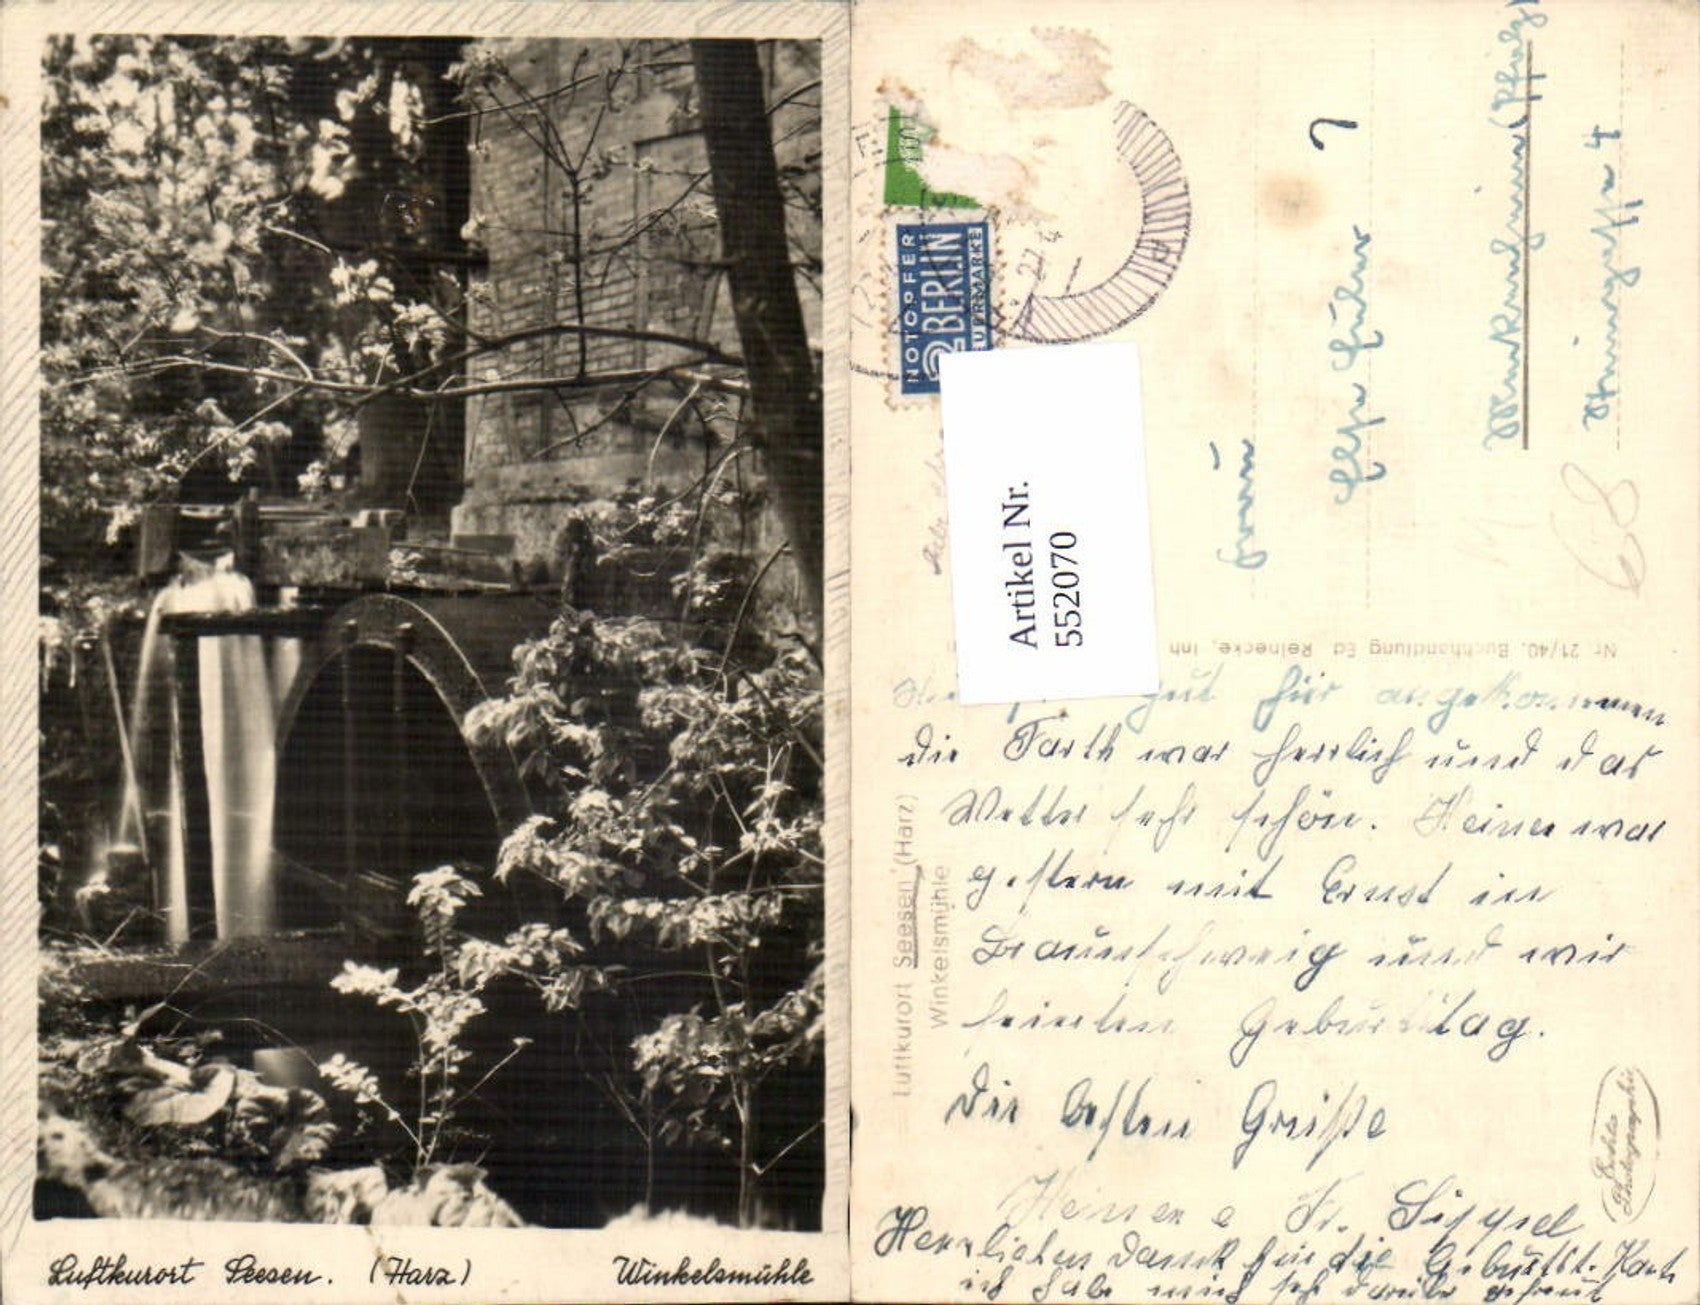 Luftkurort Seesen. (Harz)
Winkelsmühle
NOTOPFER
2 BERLIN
STEUERMARKE
27.4
Artikel Nr.
552070
Frau
Else
Sturmgasse 4
68
Nr. 21/40. Buchhandlung Ed. Reinecke, Inh
Luftkurort Seesen (Harz)
Winkelsmühle
gut hier angekommen
die Farth war herrlich und das
Wetter sehr schön. Heiner war
gestern mit Ernst in
Braunschweig und wir
feierten Geburtstag.
Die besten Grüße
Heiner e Fr. Sippel
Herzlichen Dank für die Geburtst. Karte
ich habe mich sehr darüber gefreut
Echte
Photographie